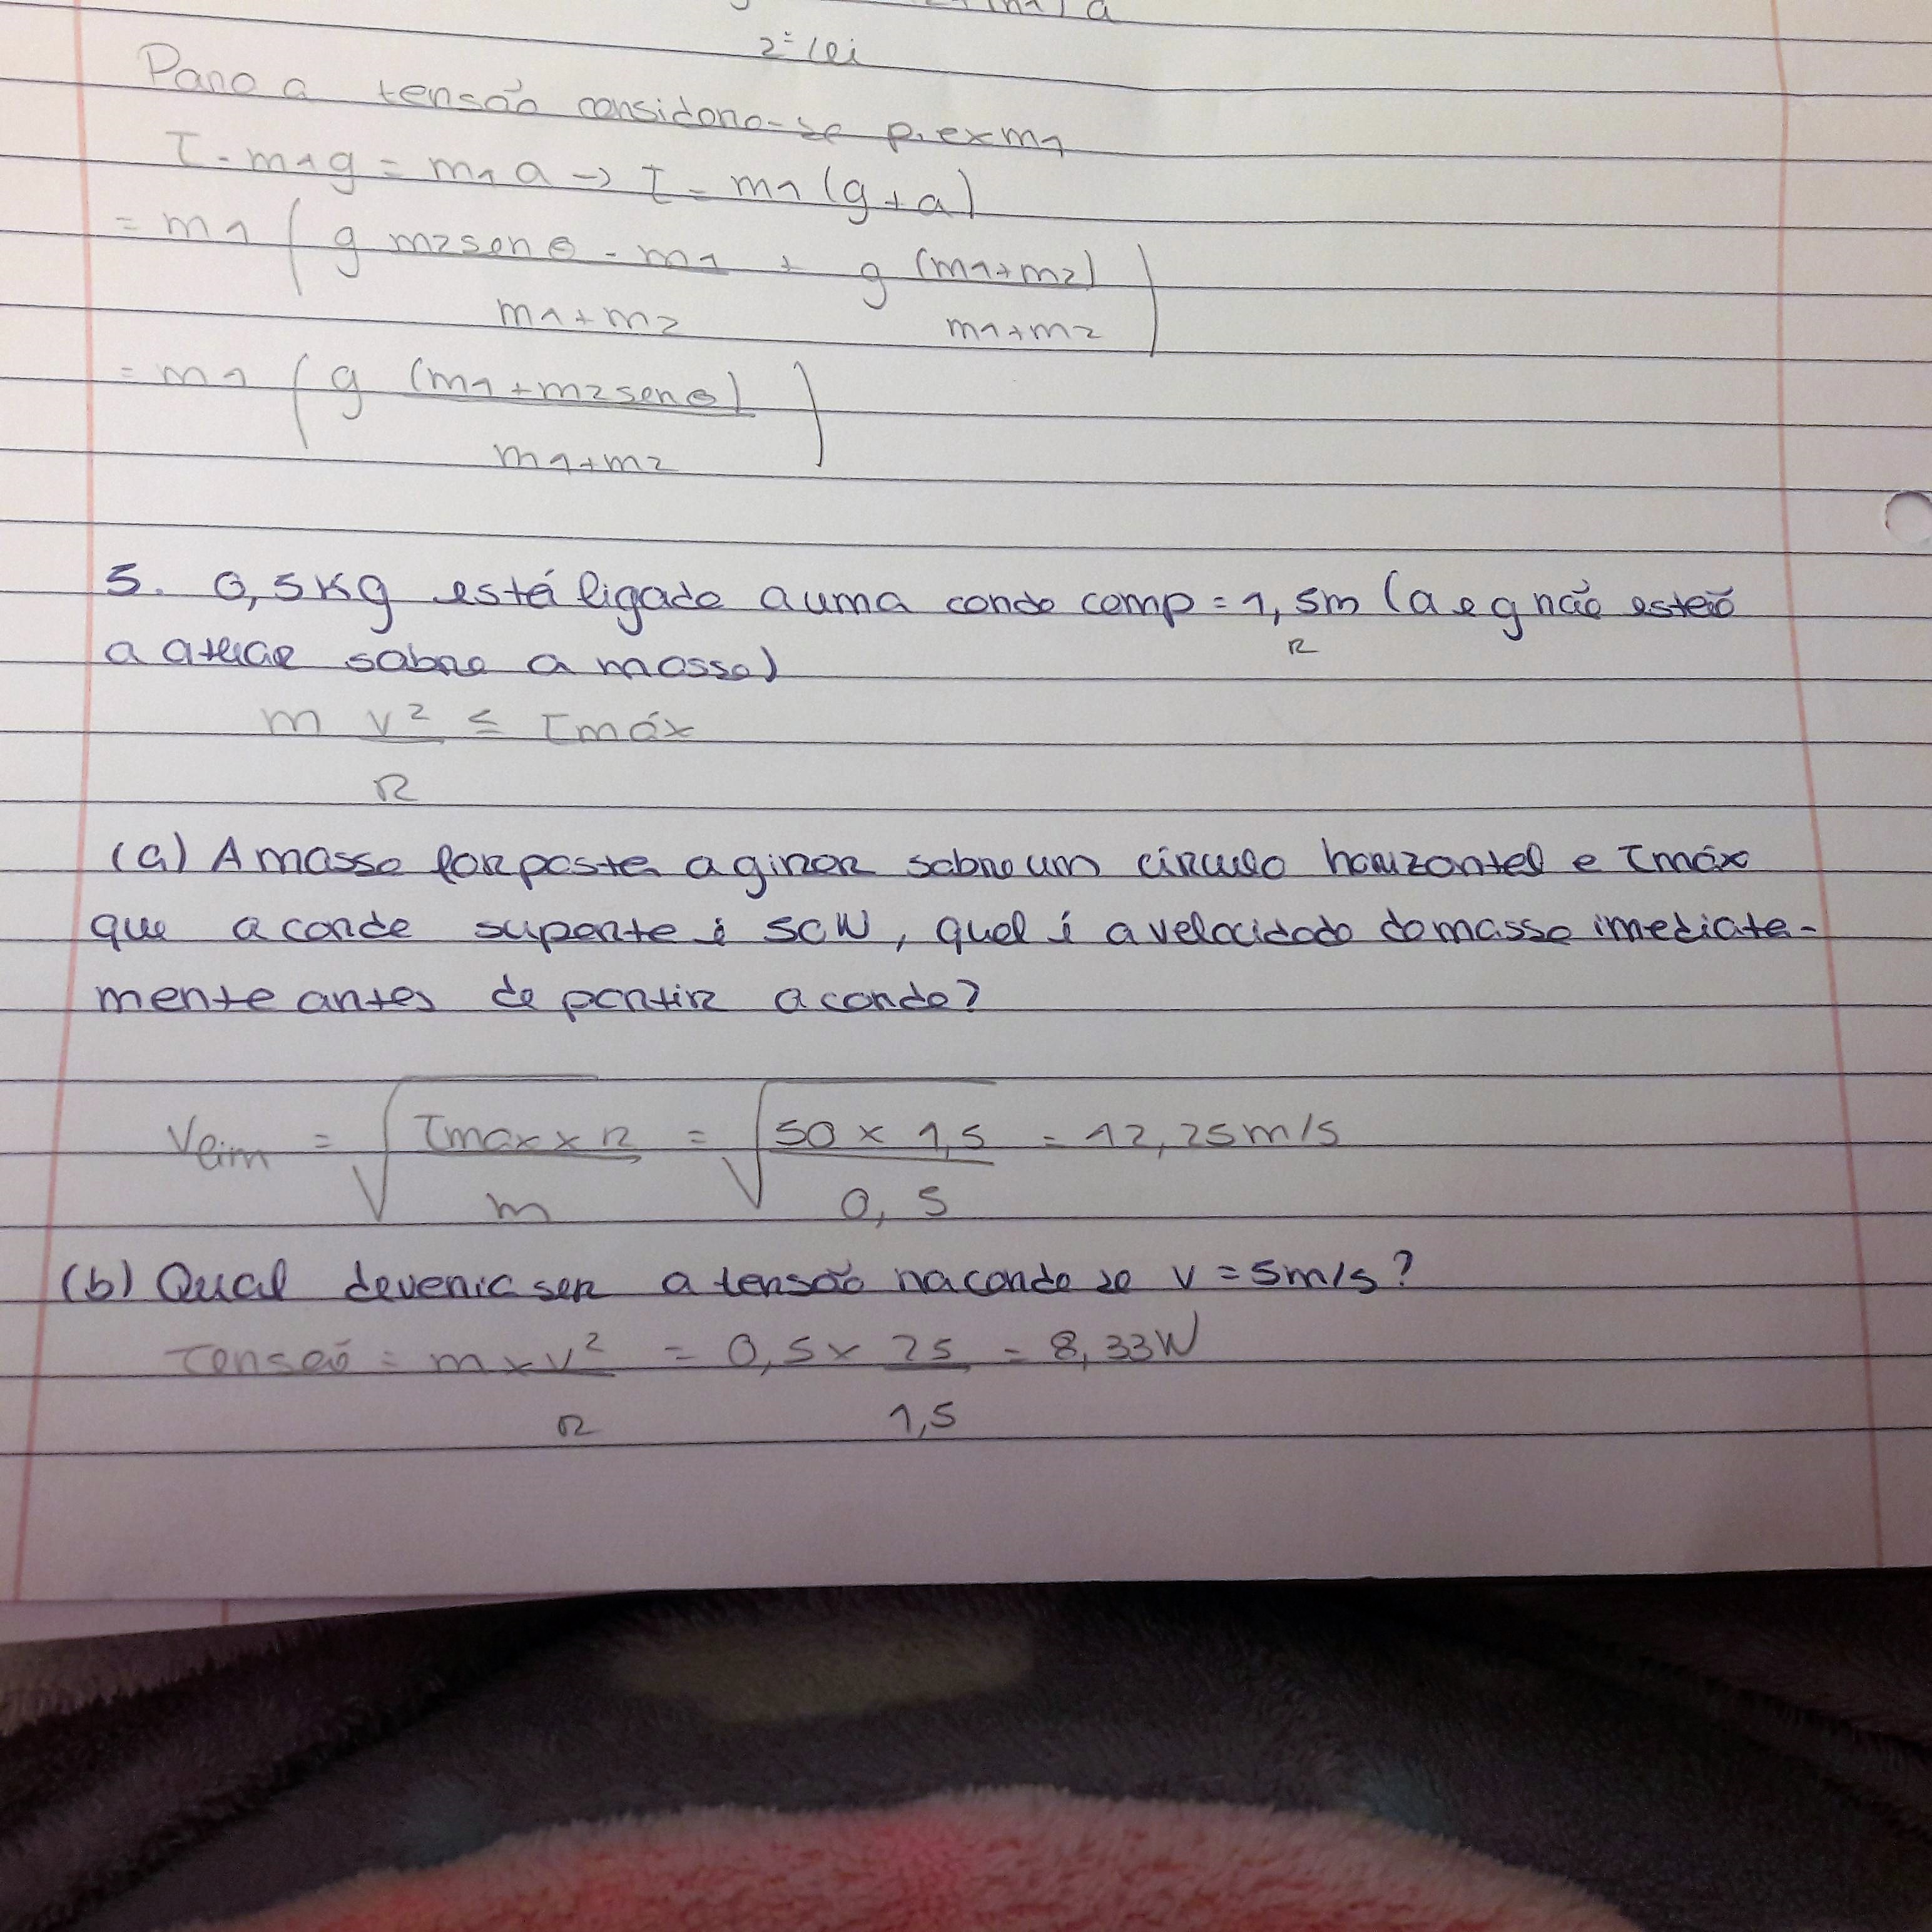 2ª lei
Para a tensão considera-se p.ex m1
T - m1g = m1 a → T = m1 (g+a)
= m1 ( g m2 sen θ - m1 + g (m1+m2) )
m1+m2 m1+m2
= m1 ( g (m1 + m2 sen θ) )
m1+m2
5. 0,5Kg está ligada a uma corda comp = 1,5m (a e g não estão
R
a atuar sobre a massa)
m v² ≤ Tmáx
R
(a) A massa for posta a girar sobre um círculo horizontal e Tmáx
que a corda suporta é 50N, qual é a velocidade da massa imediata-
mente antes de partir a corda?
Vlim = √ Tmax x R = √ 50 x 1,5 = 12,25m/s
m 0,5
(b) Qual deveria ser a tensão na corda se v = 5m/s?
Tensão = m x v² = 0,5 x 25 = 8,33N
R 1,5